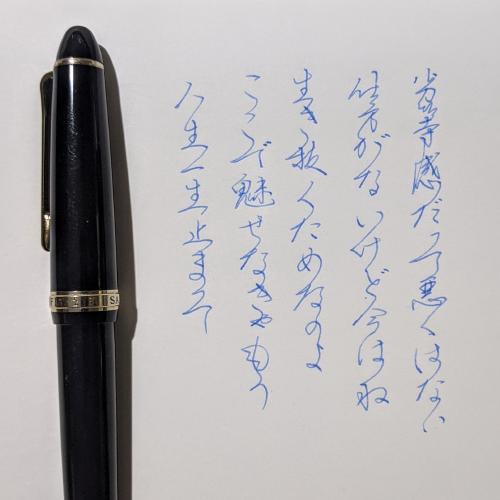 劣等感だって悪くはない
仕方がないけど今はね
生き抜くためなのよ
ここで魅せなきゃもう
人生一生止まって